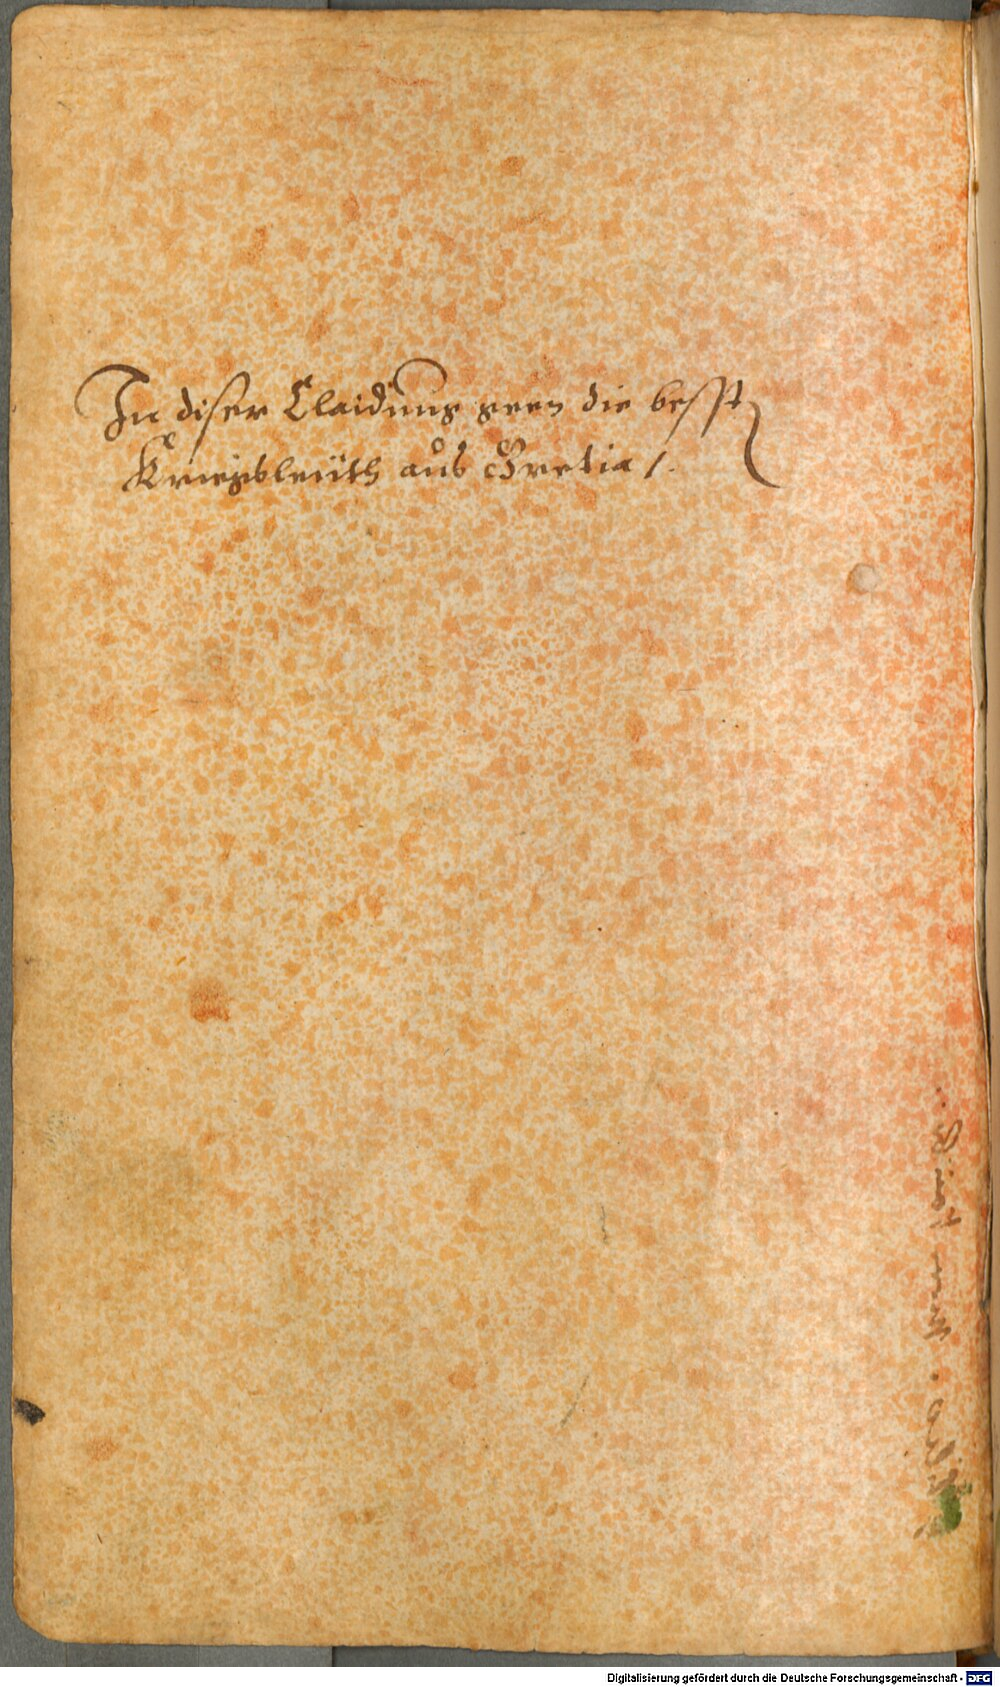 In diser Claidung geen die besst
Kriegsleüth aus Gretia /.
Digitalisierung gefördert durch die Deutsche Forschungsgemeinschaft - DFG